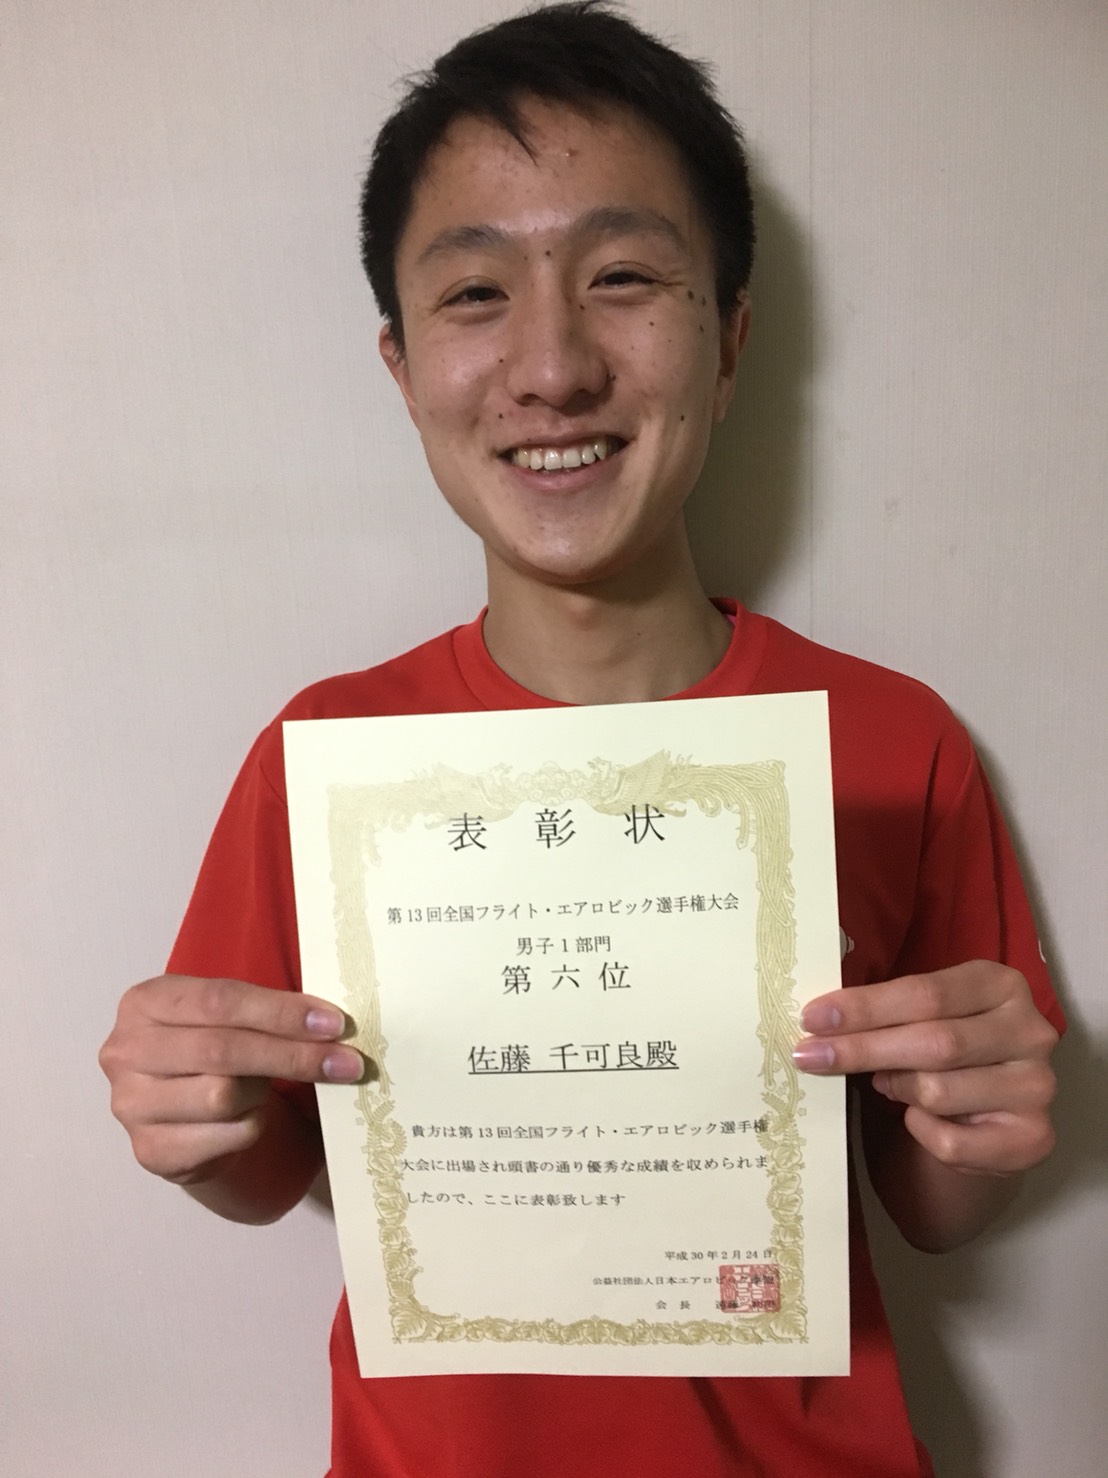 表彰状
第13回全国フライト・エアロビック選手権大会
男子1部門
第六位
佐藤 千可良殿
貴方は第13回全国フライト・エアロビック選手権
大会に出場され頭書の通り優秀な成績を収められま
したので、ここに表彰致します
平成30年2月24日
公益社団法人日本エアロビック連盟
会長